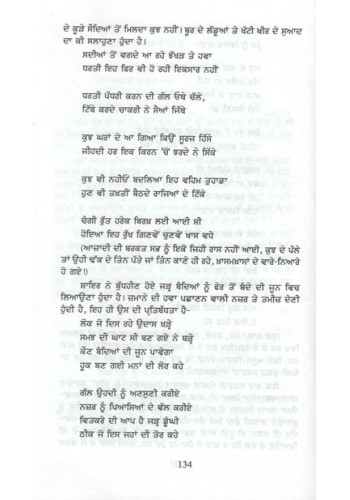 ਦੇ ਕੂੜੇ ਸੌਦਿਆਂ ਤੋਂ ਮਿਲਦਾ ਕੁਝ ਨਹੀਂ। ਬੂਰ ਦੇ ਲੱਡੂਆਂ ਤੇ ਖੱਟੀ ਖੀਰ ਦੇ ਸੁਆਦ
ਦਾ ਕੀ ਸਲਾਹੁਣਾ ਹੁੰਦਾ ਹੈ।
ਸਦੀਆਂ ਤੋਂ ਵਗਦੇ ਆ ਰਹੇ ਝੱਖੜ ਤੇ ਹਵਾ
ਧਰਤੀ ਇਹ ਫਿਰ ਵੀ ਹੋ ਰਹੀ ਇਕਸਾਰ ਨਹੀਂ
ਧਰਤੀ ਪੱਧਰੀ ਕਰਨ ਦੀ ਗੱਲ ਓਥੇ ਚੱਲੇ,
ਟਿੱਬੇ ਕਰਦੇ ਚਾਕਰੀ ਨੇ ਸੈਆਂ ਜਿੱਥੇ
ਕੁਝ ਘਰਾਂ ਦੇ ਆ ਗਿਆ ਕਿਉਂ ਸੂਰਜ ਹਿੱਸੇ
ਜੀਹਦੀ ਹਰ ਇਕ ਕਿਰਨ 'ਚੋਂ ਝਰਦੇ ਨੇ ਸਿੱਕੇ
ਕੁਝ ਵੀ ਨਹੀਓਂ ਬਦਲਿਆ ਇਹ ਵਹਿਮ ਤੁਹਾਡਾ
ਹੁਣ ਵੀ ਤਖ਼ਤੀਂ ਬੈਠਦੇ ਰਾਜਿਆਂ ਦੇ ਟਿੱਕੇ
ਚੰਗੀ ਰੁੱਤ ਹਰੇਕ ਬਿਰਖ਼ ਲਈ ਆਈ ਸੀ
ਹੋਇਆ ਇਹ ਰੁੱਖ ਗਿਣਵੇਂ ਚੁਣਵੇਂ ਖ਼ਾਸ ਵਧੇ
(ਆਜ਼ਾਦੀ ਦੀ ਬਰਕਤ ਸਭ ਨੂੰ ਇਕੋ ਜਿਹੀ ਰਾਸ ਨਹੀਂ ਆਈ, ਕੁਝ ਦੇ ਪੱਲੇ
ਤਾਂ ਉਹੀ ਢੱਕ ਦੇ ਤਿੰਨ ਪੱਤੇ ਜਾਂ ਤਿੰਨ ਕਾਣੇ ਹੀ ਰਹੇ, ਖ਼ਾਸਮਖ਼ਾਸਾਂ ਦੇ ਵਾਰੇ-ਨਿਆਰੇ
ਹੋ ਗਏ!)
ਸ਼ਾਇਰ ਨੇ ਬੁੱਧਹੀਣ ਹੋਏ ਜੜ੍ਹ ਬੰਦਿਆਂ ਨੂੰ ਫੇਰ ਤੋਂ ਬੰਦੇ ਦੀ ਜੂਨ ਵਿਚ
ਲਿਆਉਣਾ ਹੁੰਦਾ ਹੈ। ਜ਼ਮਾਨੇ ਦੀ ਹਵਾ ਪਛਾਣਨ ਵਾਲੀ ਨਜ਼ਰ ਤੇ ਤਮੀਜ਼ ਦੇਣੀ
ਹੁੰਦੀ ਹੈ, ਇਹ ਹੀ ਉਸ ਦੀ ਪ੍ਰਤਿਬੱਧਤਾ ਹੈ-
ਲੋਕ ਜੋ ਦਿਸ ਰਹੇ ਉਦਾਸ ਖੜ੍ਹੇ
ਸਮਝ ਦੀ ਘਾਟ ਸੀ ਬਣ ਗਏ ਨੇ ਥੜ੍ਹੇ
ਕੌਣ ਬੰਦਿਆਂ ਦੀ ਜੂਨ ਪਾਵੇਗਾ
ਹੂਕ ਬਣ ਗਈ ਮਨਾਂ ਦੀ ਲੋਰ ਕਹੇ
ਗੱਲ ਉਹਦੀ ਨੂੰ ਅਣਸੁਣੀ ਕਰੀਏ
ਨਜ਼ਰ ਨੂੰ ਪਿਆਸਿਆਂ ਦੇ ਵੱਲ ਕਰੀਏ
ਵਿਤਕਰੇ ਦੀ ਆਪ ਹੈ ਜੜ੍ਹ ਡੂੰਘੀ
ਠੀਕ ਜੋ ਇਸ ਜਹਾਂ ਦੀ ਤੋਰ ਕਹੇ
134